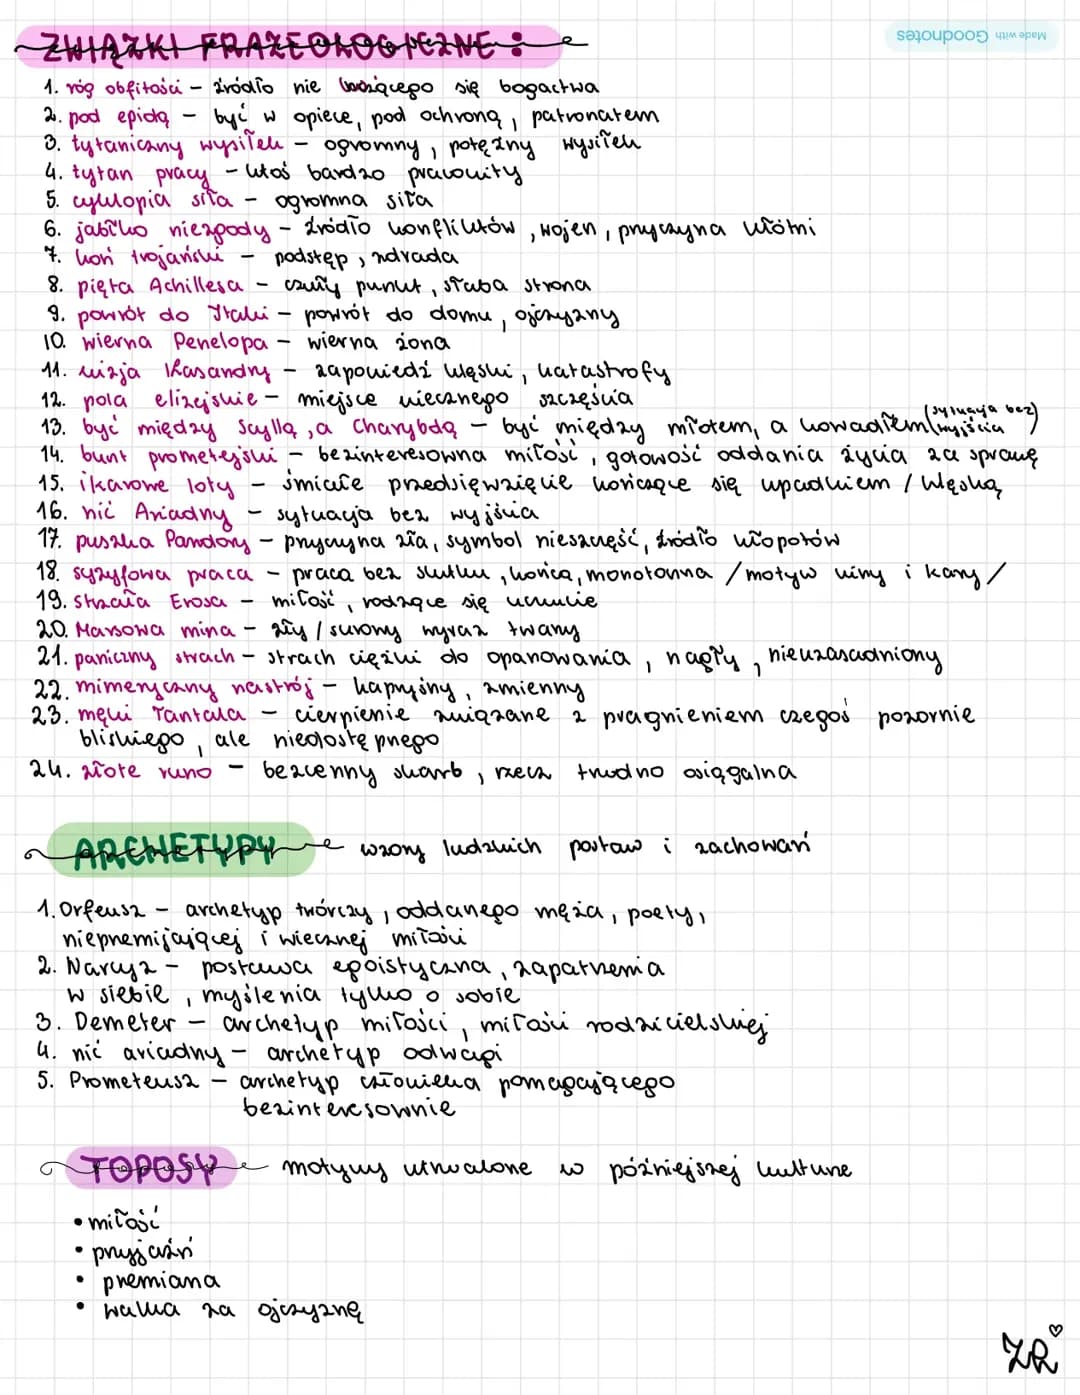 ZWIĄZKI FRAZEOLOGICZNE:
Made with Goodnotes
1. róg obfitości – źródło nie kończącego się bogactwa
2. pod egidą – być w opiece, pod ochroną, patronatem
3. tytaniczny wysiłek – ogromny, potężny wysiłek
4. tytan pracy – ktoś bardzo pracowity
5. cyklopia siła – ogromna siła
6. jabłko niezgody – źródło konfliktów, wojen, przyczyna kłótni
7. koń trojański – podstęp, zdrada
8. pięta Achillesa – czuły punkt, słaba strona
9. powrót do Itaki – powrót do domu, ojczyzny
10. wierna Penelopa – wierna żona
11. wizja Kasandry – zapowiedź klęski, katastrofy
12. pola elizejskie – miejsce wiecznego szczęścia
13. być między Scyllą, a Charybdą – być między młotem, a kowadłem (sytuacja bez wyjścia)
14. bunt prometejski – bezinteresowna miłość, gotowość oddania życia za sprawę
15. ikarowe loty – śmiałe przedsięwzięcie kończące się upadkiem / klęską
16. nić Ariadny – sytuacja bez wyjścia
17. puszka Pandory – przyczyna zła, symbol nieszczęść, źródło kłopotów
18. syzyfowa praca – praca bez skutku, końca, monotonna / motyw winy i kary /
19. strzała Erosa – miłość, rodzące się uczucie
20. Marsowa mina – zły / surowy wyraz twarzy
21. paniczny strach – strach ciężki do opanowania, nagły, nieuzasadniony
22. mimeryczny nastrój – kapryśny, zmienny
23. męki Tantala – cierpienie związane z pragnieniem czegoś pozornie
bliskiego, ale niedostępnego
24. złote runo – bezcenny skarb, rzecz trudno osiągalna
ARCHETYPY wzory ludzkich postaw i zachowań
1. Orfeusz – archetyp twórczy, oddanego męża, poety,
nieprzemijającej i wiecznej miłości
2. Narcyz – postawa egoistyczna, zapatrzenia
w siebie, myślenia tylko o sobie
3. Demeter – archetyp miłości, miłości rodzicielskiej
4. nić ariadny – archetyp odwagi
5. Prometeusz – archetyp człowieka pomagającego
bezinteresownie
TOPOSY motywy utrwalone w późniejszej kulturze
• miłość
• przyjaźń
• przemiana
• walka za ojczyznę
ZR